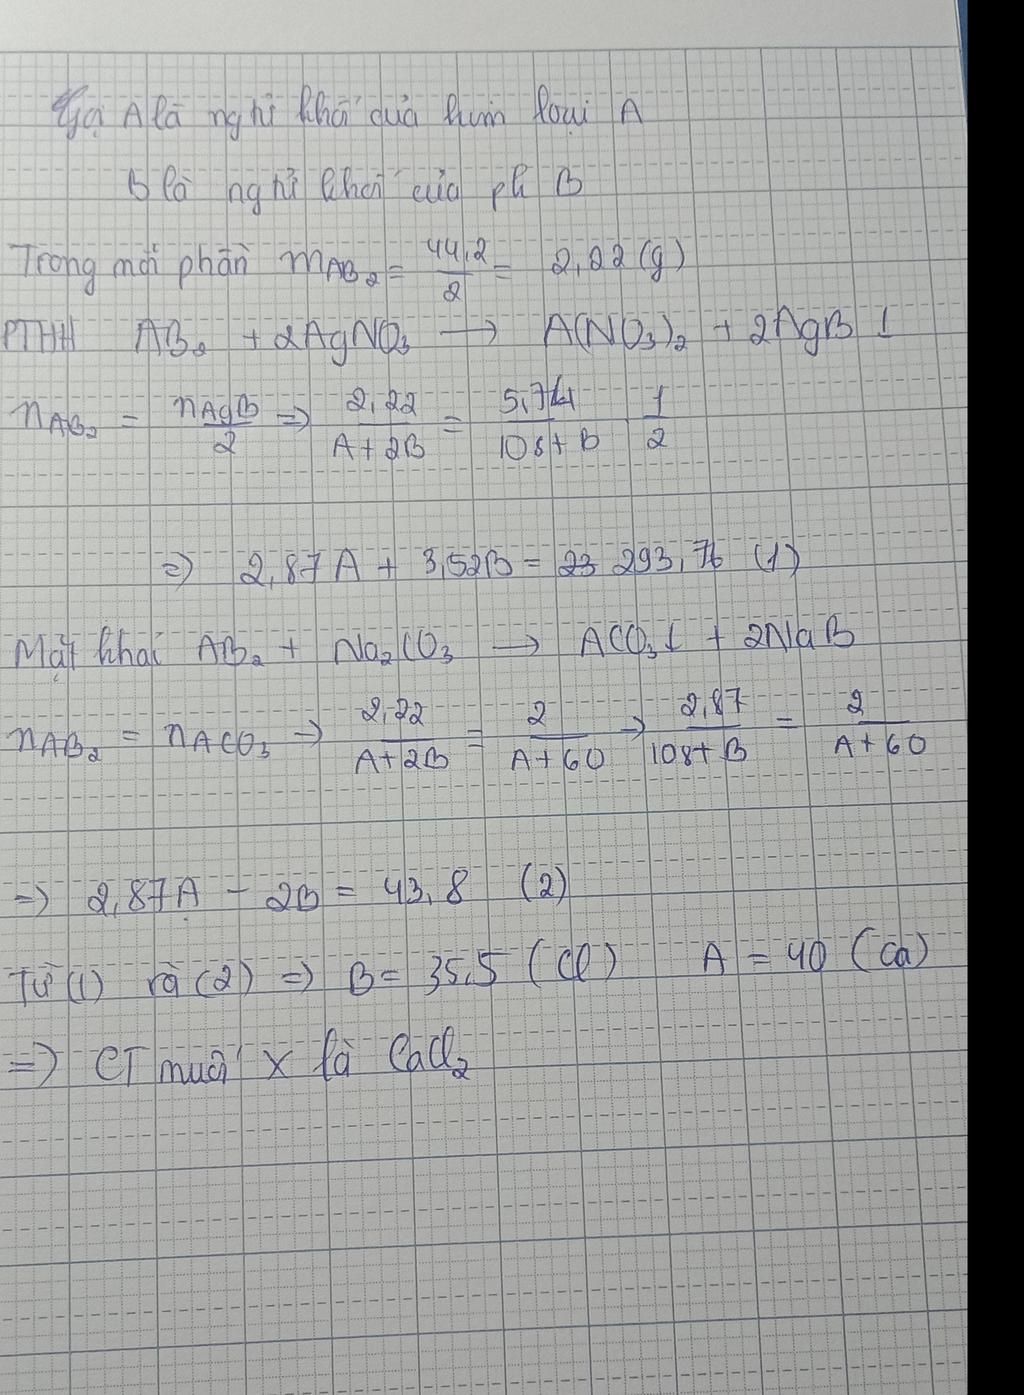 Gọi A là nghi khối quả kim loại A
B là nghi khối của pk B
Trong mỗi phần mAB₂ = 44,2/2 = 2,22 (g)
PTHH AB₂ + 2AgNO₃ → A(NO₃)₂ + 2AgB ↓
nAB₂ = nAgB/2 => 2,22/(A+2B) = 5,74/(108+B) 1/2
=> 2,87A + 3,52B = 23 293,76 (1)
Mặt khái AB₂ + Na₂CO₃ → ACO₃↓ + 2NaB
nAB₂ = nACO₃ → 2,22/(A+2B) = 2/(A+60) → 2,87/(108+B) = 2/(A+60)
=> 2,87A - 2B = 43,8 (2)
Từ (1) và (2) => B = 35,5 (Cl) A = 40 (Ca)
=> CT muối X là CaCl₂